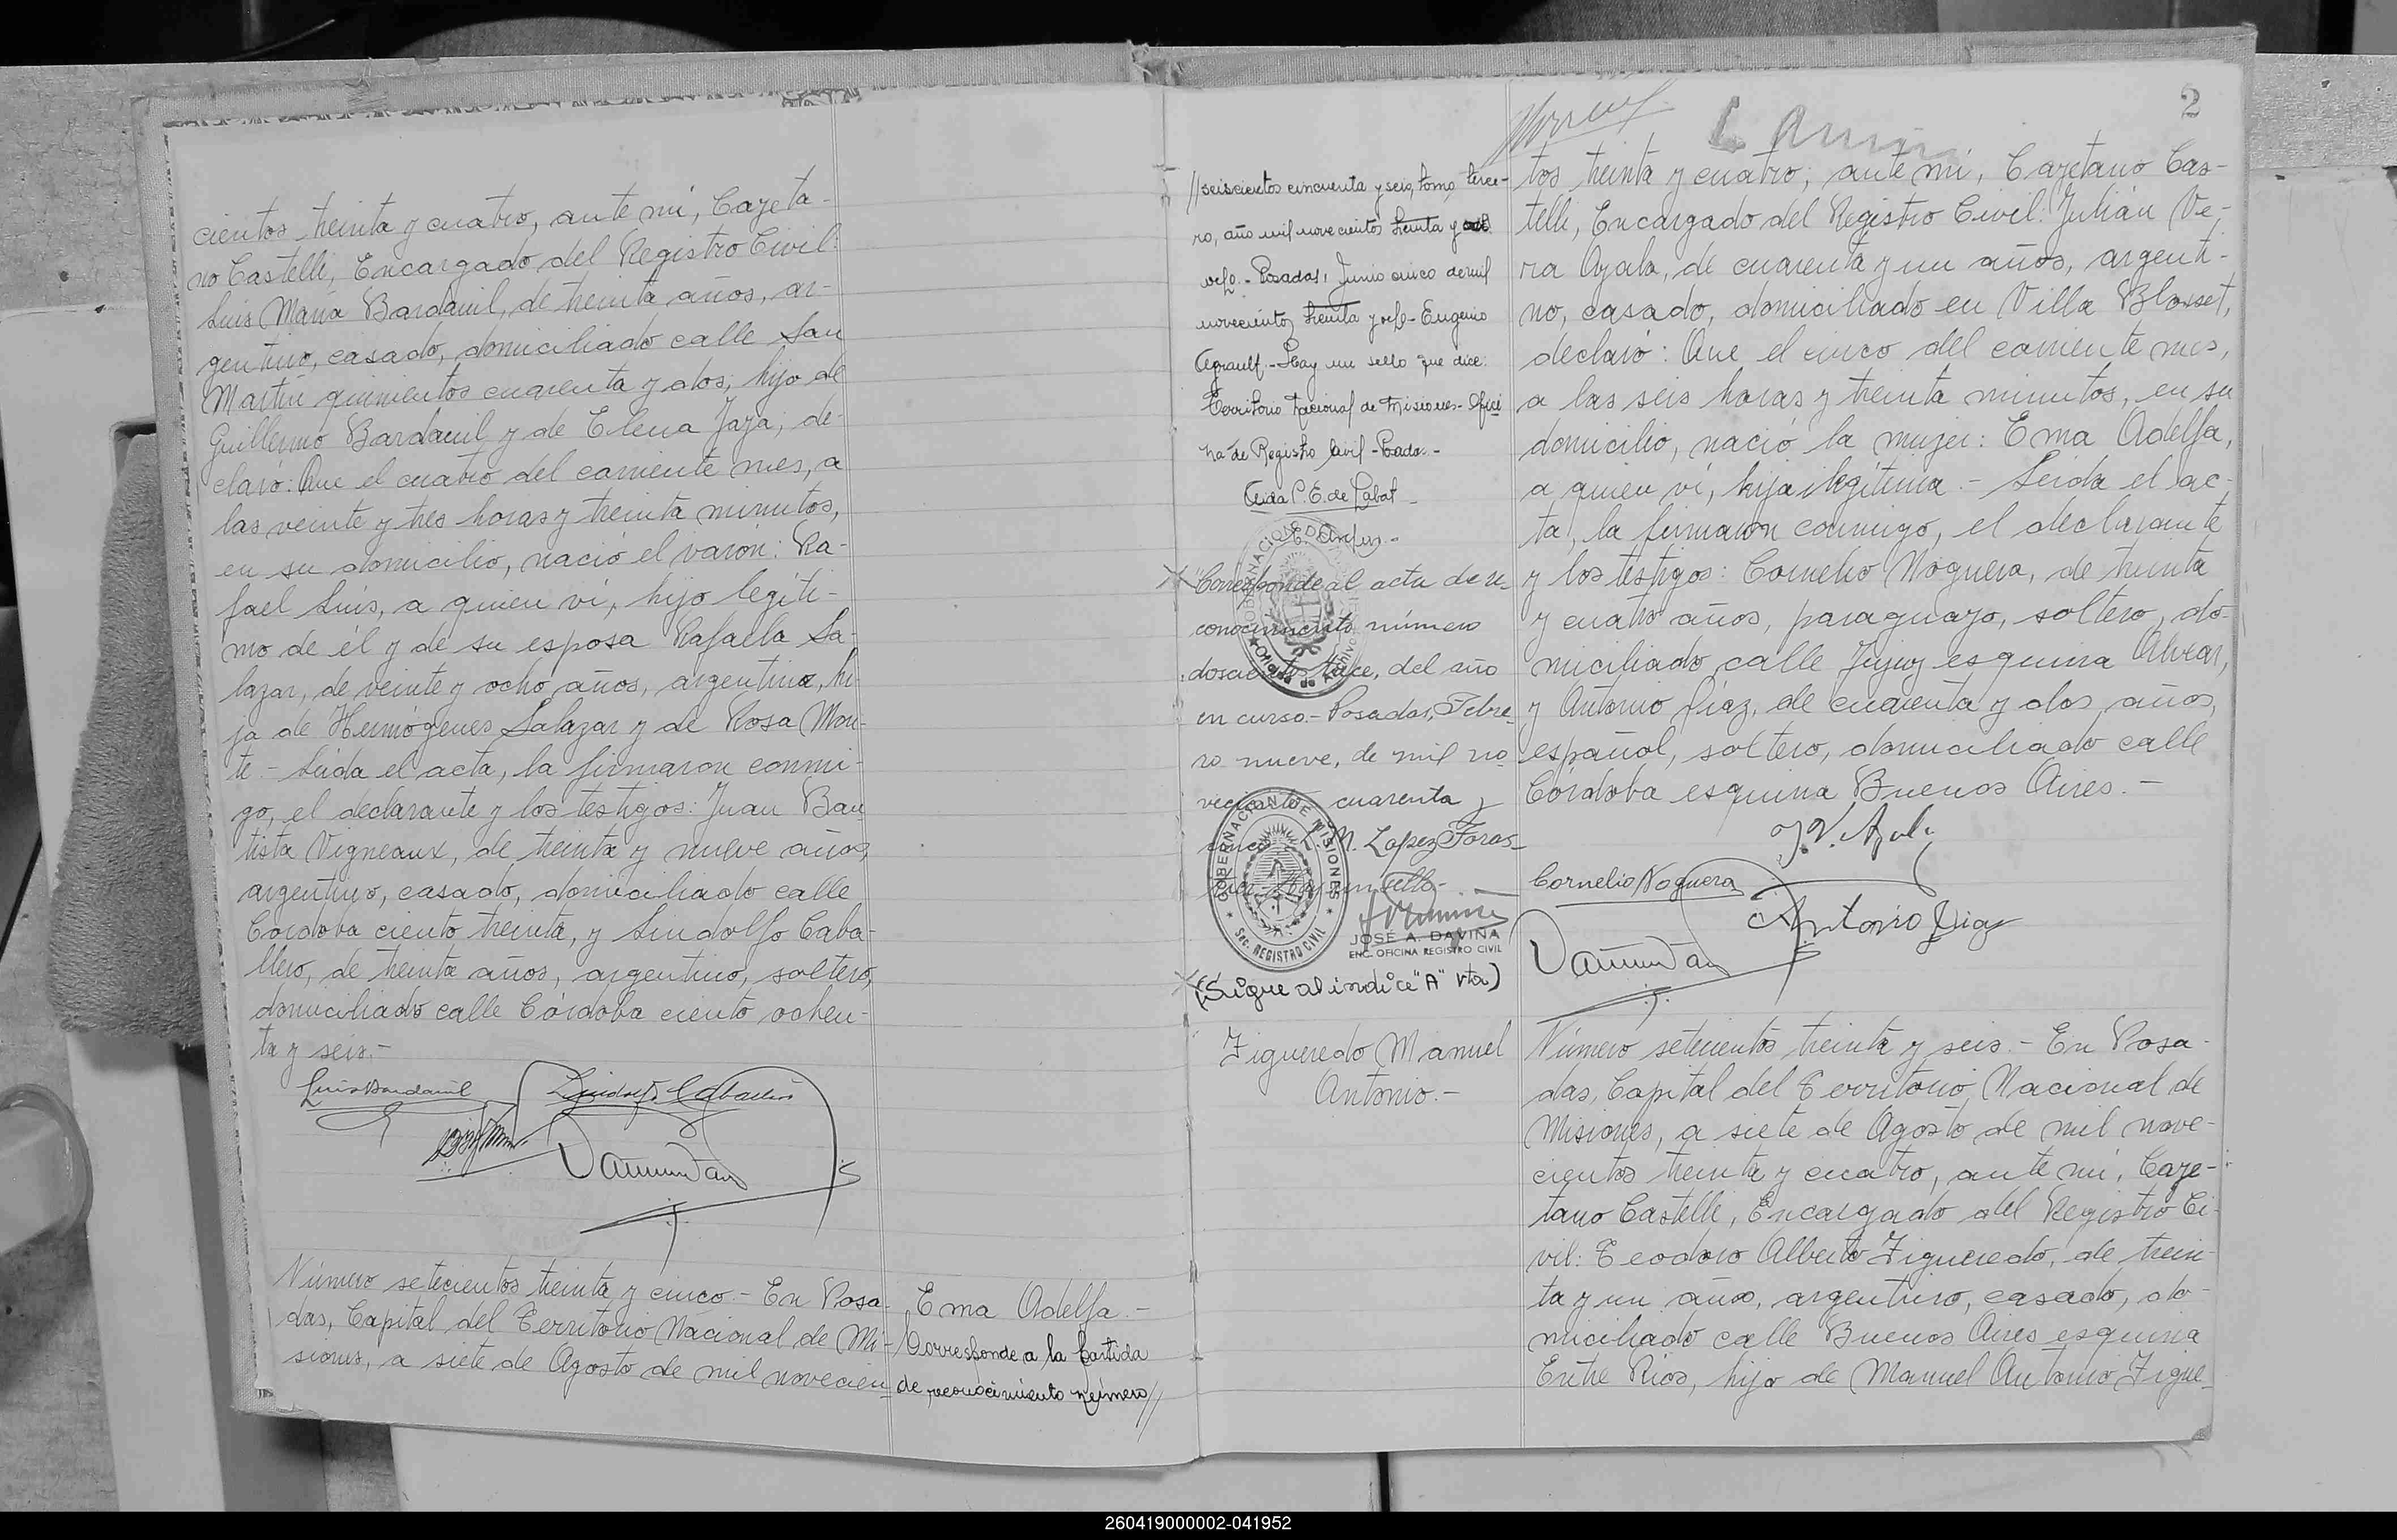 cientos treinta y cuatro, ante mi, Cayeta-
no Castelli, Encargado del Registro Civil:
Luis María Bardanil, de treinta años, ar-
gentino, casado, domiciliado calle San
Martín quinientos cuarenta y dos, hijo de
Guillermo Bardanil y de Elena Jaja, de-
claró: Que el cuatro del corriente mes, a
las veinte y tres horas y treinta minutos,
en su domicilio, nació el varón: Ra-
fael Luis, a quien vi, hijo legíti-
mo de él y de su esposa Rafaela Sa-
lazar, de veinte y ocho años, argentina, hi-
ja de Hermógenes Salazar y de Rosa Mon-
te.- Leida el acta, la firmaron conmi-
go, el declarante y los testigos: Juan Bau
tista Vigneaux, de treinta y nueve años,
argentino, casado, domiciliado calle
Córdoba ciento treinta, y Lindolfo Caba-
llero, de treinta años, argentino, soltero,
domiciliado calle Córdoba ciento ochen-
ta y seis.-
Luis Bardanil
Lindolfo Caballero
Número setecientos treinta y cinco.- En Posa-
das, Capital del Territorio Nacional de Mi-
siones, a siete de Agosto de mil novecien
Ema Adelfa.-
Corresponde a la partida
de reconocimiento número//
2
//seiscientos cincuenta y seis, tomo terce-
ro, año mil novecientos treinta y
Posadas, Junio cinco de mil
novecientos treinta y Eugenio
Hay un sello que dice:
Territorio Nacional de Misiones- Ofici
na de Registro Civil - Posadas.-
Aida P. E. de Labat
"Corresponde al acta de re-
conocimiento número
doscientos trece, del año
en curso.- Posadas, Febre-
ro nueve, de mil no
vecientos cuarenta y
cinco L. M. Lopez Foras-
Hay un sello.-
GOBERNACION DE MISIONES
Sec. REGISTRO CIVIL
JOSÉ A. DAVIÑA
ENC. OFICINA REGISTRO CIVIL
(Sigue al indice "A" vta)
Figueredo Manuel
Antonio.-
tos treinta y cuatro, ante mi, Cayetano Cas-
telli, Encargado del Registro Civil: Julián Ve-
ra Ayala, de cuarenta y un años, argenti-
no, casado, domiciliado en Villa Blosset,
declaró: Que el cinco del corriente mes,
a las seis horas y treinta minutos, en su
domicilio, nació la mujer: Ema Adelfa,
a quien vi, hija ilegítima.- Leida el ac-
ta, la firmaron conmigo, el declarante
y los testigos: Cornelio Noguera, de treinta
y cuatro años, paraguayo, soltero, do-
miciliado calle Jujuy esquina Alvear,
y Antonio Diaz, de cuarenta y dos años,
español, soltero, domiciliado calle
Córdoba esquina Buenos Aires.-
Cornelio Noguera
Antonio Diaz
Número setecientos treinta y seis.- En Posa-
das, Capital del Territorio Nacional de
Misiones, a siete de Agosto de mil nove-
cientos treinta y cuatro, ante mi, Caye-
tano Castelli, Encargado del Registro Ci-
vil: Teodoro Alberto Figueredo, de trein-
ta y un años, argentino, casado, do-
miciliado calle Buenos Aires esquina
Entre Rios, hijo de Manuel Antonio Figue-
260419000002-041952